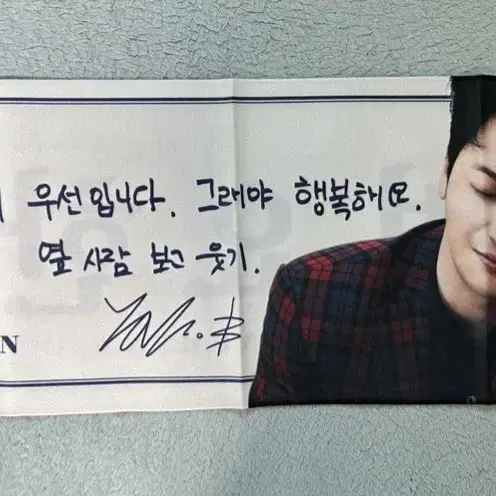 우선입니다. 그래야 행복해요.
옆 사람 보고 웃기.
N